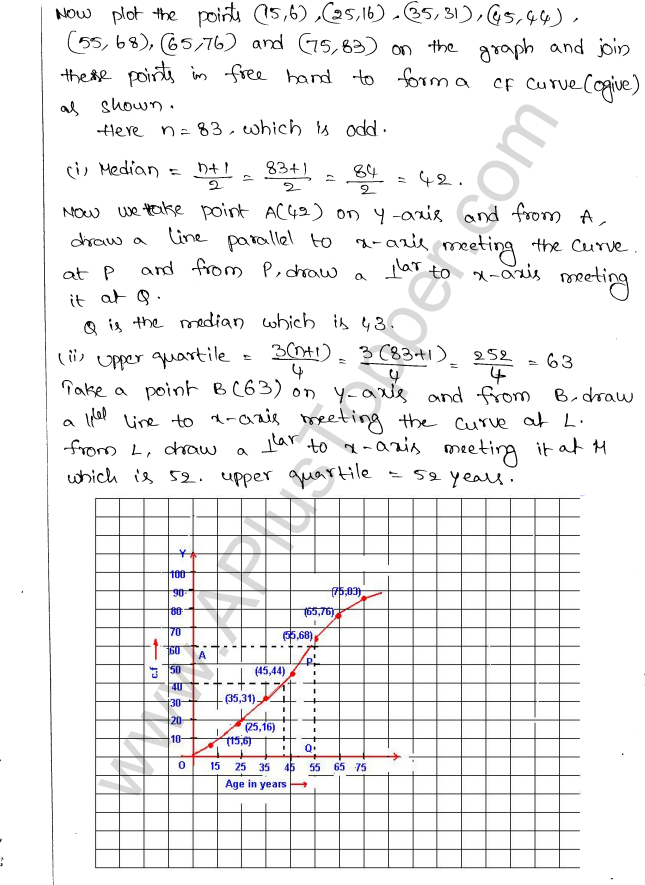 Now plot the points (15,6), (25,16), (35,31), (45,44),
(55,68), (65,76) and (75,83) on the graph and join
these points in free hand to form a cf curve (ogive)
as shown.
Here n = 83, which is odd.
(i) Median = n+1/2 = 83+1/2 = 84/2 = 42.
Now we take point A(42) on y-axis and from A,
draw a line parallel to x-axis meeting the curve.
at P and from P, draw a ⊥lar to x-axis meeting
it at Q.
Q is the median which is 43.
(ii) Upper quartile = 3(n+1)/4 = 3(83+1)/4 = 252/4 = 63
Take a point B(63) on y-axis and from B, draw
a ||lel line to x-axis meeting the curve at L.
from L, draw a ⊥lar to x-axis meeting it at M
which is 52. upper quartile = 52 years.
www.APlusTopper.com
Y
100
90
80
70
60
50
40
30
20
10
O
c.f
A
P
Q
(75,83)
(65,76)
(55,68)
(45,44)
(35,31)
(25,16)
(15,6)
15 25 35 45 55 65 75
Age in years